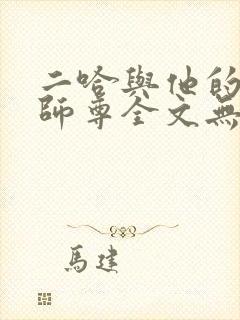 二哈與他的
師尊全文無
馬建